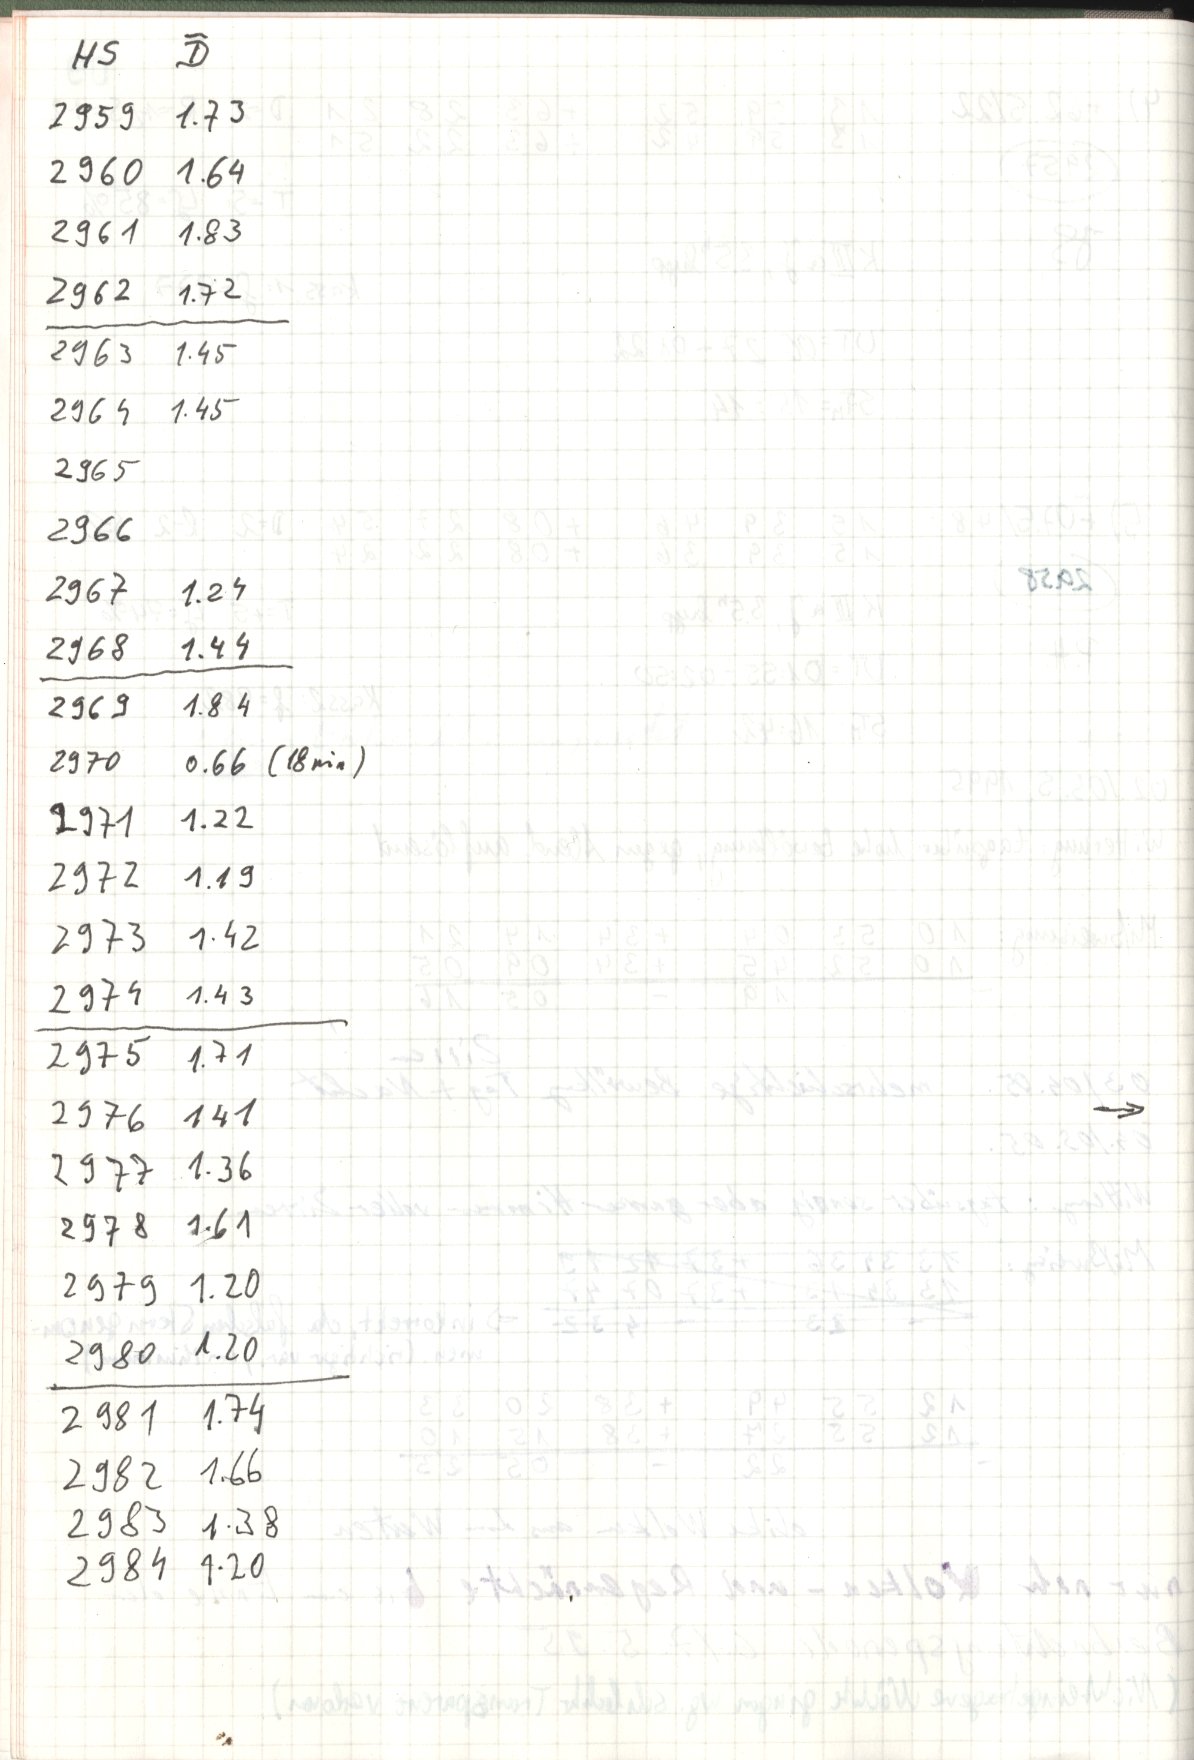 HS D̅
2959 1.73
2960 1.64
2961 1.83
2962 1.72
2963 1.45
2964 1.45
2965
2966
2967 1.24
2968 1.44
2969 1.84
2970 0.66 (18min)
2971 1.22
2972 1.19
2973 1.42
2974 1.43
2975 1.71
2976 141
2977 1.36
2978 1.61
2979 1.20
2980 1.20
2981 1.74
2982 1.66
2983 1.38
2984 1.20
→